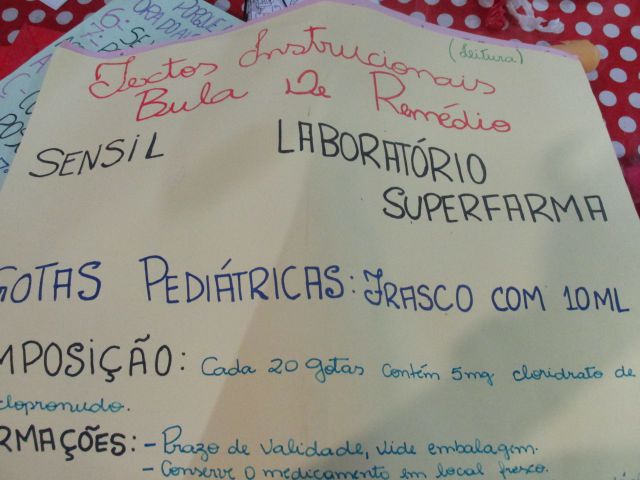 PORQUE
ORADDA
6:
7:
(Leitura)
Textos Instrucionais
Bula De Remédio
SENSIL
LABORATÓRIO
SUPERFARMA
GOTAS PEDIÁTRICAS: FRASCO COM 10ML
MPOSIÇÃO: Cada 20 gotas contém 5mg cloridrato de
clopronudo.
RMAÇÕES: - Prazo de validade, vide embalagem.
- Conserve o medicamento em local fresco.